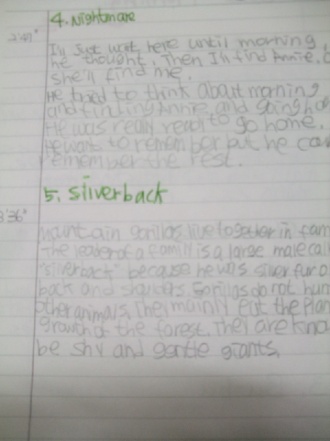 4. Nightmare
2'41"
I'll just wait here until morning,
he thought. Then I'll find Annie. O
she'll find me.
He tried to think about morning
and finding Annie and going ho
He was really ready to go home.
He wants to remember but he can
remember the rest.
5. Silverback
3'36"
Mountain gorillas live together in fam
The leader of a family is a large male call
"silverback" because he was silver fur o
back and
Gorillas do not hun
other animals. They mainly eat the plan
growth of the forest. They are know
be shy and gentle giants.